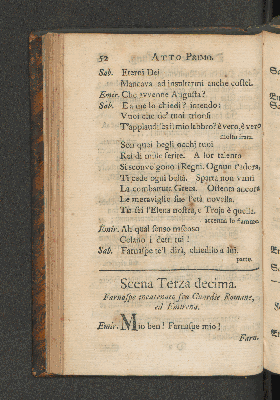 52 ATTO PRIMO.
Sab. Eterni Dei
Mancava ad insultarmi anche costei.
Emir. Che avvenne Augusta?
Sab. E a me lo chiedi? intendo:
Vuoi che de' tuoi trionfi
T'applauda il mio labbro? è vero, è vero
Son quei begli occhi tuoi
Rei di mille ferite. A lor talento
Si sconvolgono i Regni. Ognun t'adora,
Ti cede ogni beltà. Sparta non vanti
La combattuta Greca. Ostento ancora
Le meraviglie sue l'età novella.
Tu sei l'Elena nostra, e Troja è quella.
accenna le fiamme.
Emir. Ah qual senso
Celano i detti tui?
Sab. Farnaspe te'l dirà, chiedilo a lui.
parte.
Scena Terza decima.
Farnaspe incatenato fra Guardie Romane,
ed Emirena.
Emir. Mio ben! Farnaspe mio!
Farn.